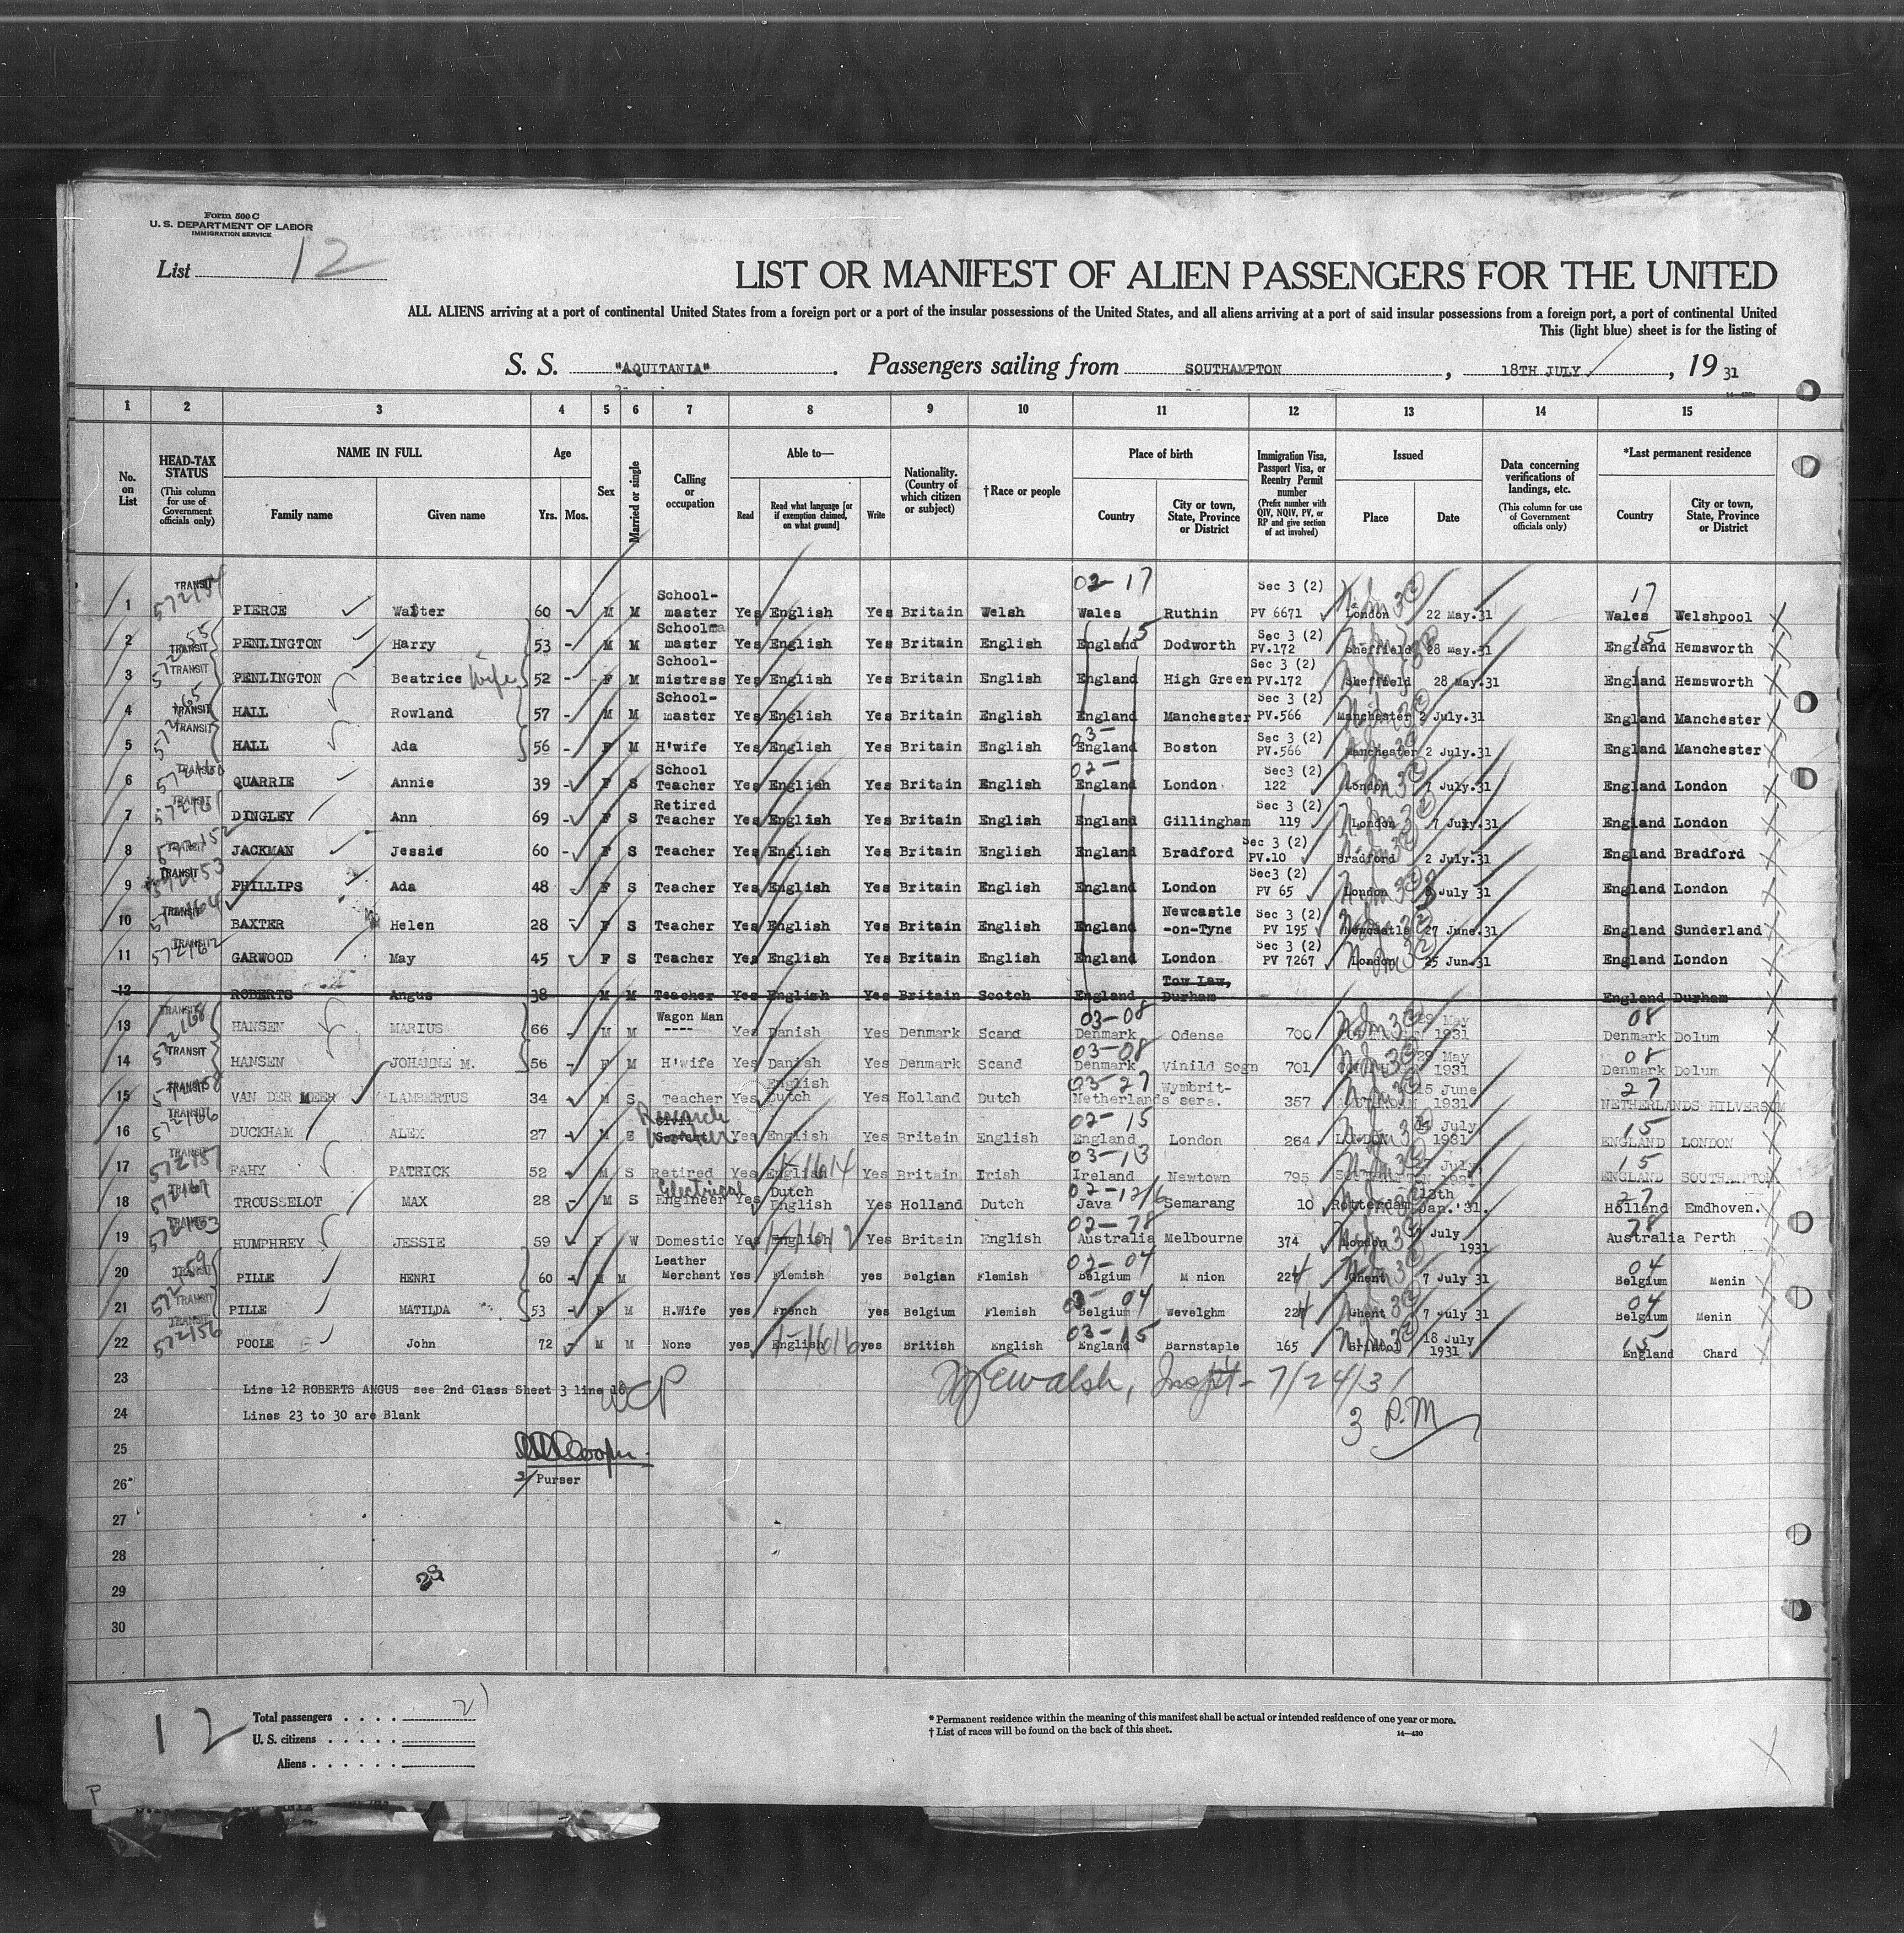 Form 500 C
U. S. DEPARTMENT OF LABOR
IMMIGRATION SERVICE
List 12
LIST OR MANIFEST OF ALIEN PASSENGERS FOR THE UNITED
ALL ALIENS arriving at a port of continental United States from a foreign port or a port of the insular possessions of the United States, and all aliens arriving at a port of said insular possessions from a foreign port, a port of continental United
This (light blue) sheet is for the listing of
S. S. "AQUITANIA". Passengers sailing from SOUTHAMPTON, 18TH JULY, 19 31
1 2 3 4 5 6 7 8 9 10 11 12 13 14 15
No. on List
HEAD-TAX STATUS (This column for use of Government officials only)
NAME IN FULL
Family name Given name
Age
Yrs. Mos.
Sex
Married or single
Calling or occupation
Able to—
Read
Read what language [or if exemption claimed, on what ground]
Write
Nationality. (Country of which citizen or subject)
†Race or people
Place of birth
Country
City or town, State, Province or District
Immigration Visa, Passport Visa, or Reentry Permit number (Prefix number with QIV, NQIV, PV, or RP and give section of act involved)
Issued
Place Date
Data concerning verifications of landings, etc. (This column for use of Government officials only)
*Last permanent residence
Country
City or town, State, Province or District
1 TRANSIT PIERCE Walter 60 M M School-master Yes English Yes Britain Welsh 02-17 Wales Ruthin Sec 3 (2) PV 6671 London 22 May.31 17 Wales Welshpool
2 TRANSIT PENLINGTON Harry 53 M M School-master Yes English Yes Britain English England 15 Dodworth Sec 3 (2) PV.172 Sheffield 28 May.31 15 England Hemsworth
3 TRANSIT PENLINGTON Beatrice wife 52 F M School-mistress Yes English Yes Britain English England High Green Sec 3 (2) PV.172 Sheffield 28 May.31 England Hemsworth
4 TRANSIT HALL Rowland 57 M M School-master Yes English Yes Britain English England Manchester Sec 3 (2) PV.566 Manchester 2 July.31 England Manchester
5 TRANSIT HALL Ada 56 F M H'wife Yes English Yes Britain English 03- England Boston Sec 3 (2) PV.566 Manchester 2 July.31 England Manchester
6 TRANSIT QUARRIE Annie 39 F S School Teacher Yes English Yes Britain English 02- England London Sec3 (2) 122 London 7 July.31 England London
7 TRANSIT DINGLEY Ann 69 F S Retired Teacher Yes English Yes Britain English England Gillingham Sec 3 (2) 119 London 7 July.31 England London
8 TRANSIT JACKMAN Jessie 60 F S Teacher Yes English Yes Britain English England Bradford Sec 3 (2) PV.10 Bradford 2 July.31 England Bradford
9 TRANSIT PHILLIPS Ada 48 F S Teacher Yes English Yes Britain English England London Sec3 (2) PV 65 London July 31 England London
10 TRANSIT BAXTER Helen 28 F S Teacher Yes English Yes Britain English England Newcastle -on-Tyne Sec 3 (2) PV 195 Newcastle 27 June.31 England Sunderland
11 TRANSIT GARWOOD May 45 F S Teacher Yes English Yes Britain English England London Sec 3 (2) PV 7267 London 25 Jun.31 England London
12 ROBERTS Angus 38 M M Teacher Yes English Yes Britain Scotch England Tow Law, Durham England Durham
13 TRANSIT HANSEN MARIUS 66 M M Wagon Man ---- Yes Danish Yes Denmark Scand 03-08 Denmark Odense 700 29 May 1931 08 Denmark Dolum
14 TRANSIT HANSEN JOHANNE M. 56 F M H'wife Yes Danish Yes Denmark Scand 03-08 Denmark Vinild Sogn 701 29 May 1931 08 Denmark Dolum
15 TRANSIT VAN DER MEER LAMBERTUS 34 M S Teacher Yes English Dutch Yes Holland Dutch 03-27 Netherlands Wymbrit-sera. 357 AMSTERDAM 25 June 1931 27 NETHERLANDS HILVERSUM
16 TRANSIT DUCKHAM ALEX 27 M S Research Worker Yes English Yes Britain English 02-15 England London 264 LONDON July 1931 15 ENGLAND LONDON
17 TRANSIT FAHY PATRICK 52 M S Retired Yes English Yes Britain Irish 03-13 Ireland Newtown 795 SOUTHAMPTON July 1931 15 ENGLAND SOUTHAMPTON
18 TRANSIT TROUSSELOT MAX 28 M S Electrical Engineer Yes Dutch English Yes Holland Dutch 02-12/6 Java Semarang 10 Rotterdam 13th Jan.'31. 27 Holland Emdhoven.
19 TRANSIT HUMPHREY JESSIE 59 F W Domestic Yes English Yes Britain English 02-78 Australia Melbourne 374 London July 1931 78 Australia Perth
20 TRANSIT PILLE HENRI 60 M M Leather Merchant Yes Flemish yes Belgian Flemish 02-04 Belgium M nion 224 Ghent 7 July 31 04 Belgium Menin
21 TRANSIT PILLE MATILDA 53 F M H.Wife yes French yes Belgium Flemish 04 Belgium Wevelghm 224 Ghent 7 July 31 04 Belgium Menin
22 TRANSIT POOLE John 72 M M None yes English yes British English 03-15 England Barnstaple 165 Bristol 18 July 1931 15 England Chard
23 Line 12 ROBERTS ANGUS see 2nd Class Sheet 3 line 18
Walsh, Inspt- 7/24/31
3 P.M
24 Lines 23 to 30 are Blank
25
26 Purser
27
28
29
30
12
Total passengers . . . . 21
U. S. citizens . . . . .
Aliens . . . . . .
* Permanent residence within the meaning of this manifest shall be actual or intended residence of one year or more.
† List of races will be found on the back of this sheet.
14—430